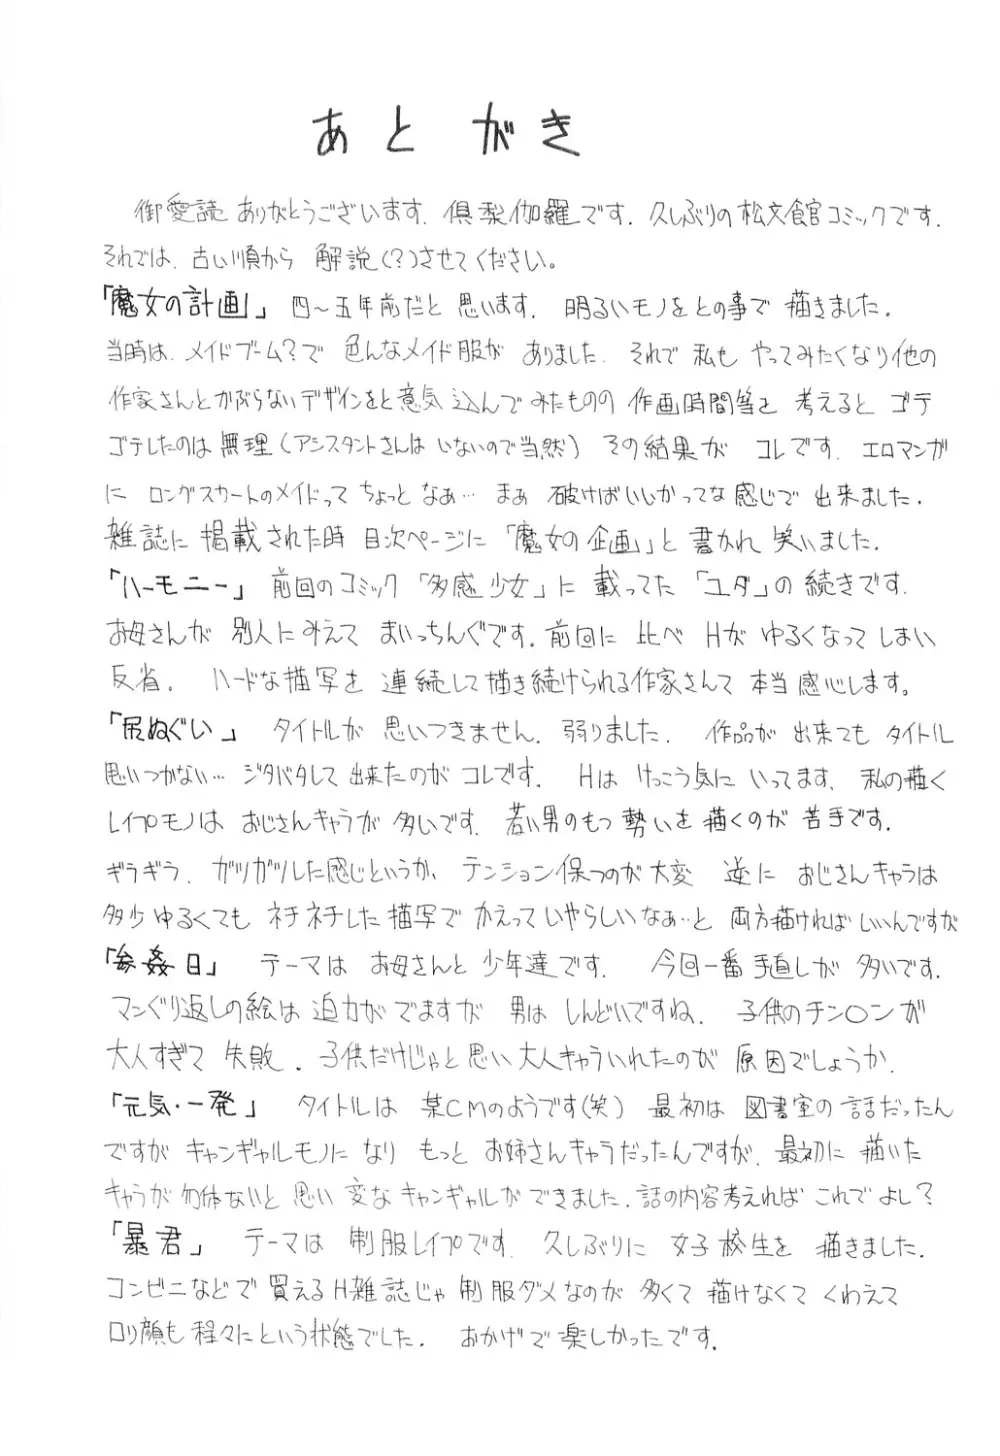 あとがき
御愛読ありがとうございます. 倶梨伽羅です. 久しぶりの松文館コミックです.
それでは. 古い順から 解説(?)させてください。
「魔女の計画」 四～五年前だと 思います. 明るいモノをとの事で 描きました.
当時は. メイドブーム?で 色んなメイド服が ありました. それで 私も やってみたくなり他の
作家さんとかぶらないデザインをと意気込んでみたものの 作画時間等を 考えると ゴテ
ゴテしたのは無理(アシスタントさんは いないので当然) その結果が コレです. エロマンガ
に ロングスカートのメイドって ちょっと なぁ… まぁ 破けばいいかってな感じで 出来ました.
雑誌に 掲載された時 目次ページに 「魔女の企画」と 書かれ 笑いました.
「ハーモニー」 前回のコミック 「多感少女」に 載ってた 「ユダ」の 続きです.
お母さんが 別人にみえて まいっちんぐです. 前回に 比べ Hが ゆるくなって しまい
反省. ハードな描写を 連続して描き続けられる作家さんて 本当感心します。
「尻ぬぐい」 タイトルが 思いつきません. 弱りました. 作品が 出来ても タイトル
思いつかない… ジタバタして 出来たのが コレです. Hは けっこう気に いってます. 私の描く
レイプモノは おじさんキャラが 多いです. 若い男のもつ 勢いを 描くのが 苦手です.
ギラギラ. ガツガツした感じというか、 テンション保つのが大変 逆に おじさんキャラは
多少 ゆるくても ネチネチした 描写で かえっていやらしいなぁ…と 両方描ければいいんですが
「参姦日」 テーマは お母さんと 少年達です. 今回一番手直しが 多いです.
マンぐり返しの絵は 迫力が でますが 男は しんどいですね. 子供のチン○ンが
大人すぎて 失敗. 子供だけじゃと思い 大人キャラいれたのが 原因でしょうか.
「元気・一発」 タイトルは 某CMのようです(笑) 最初は 図書室の 話だったん
ですが キャンギャルモノに なり もっと お姉さんキャラだったんですが. 最初に 描いた
キャラが勿体ないと 思い 変なキャンギャルができました. 話の内容考えれば これで よし?
「暴君」 テーマは 制服レイプです. 久しぶりに 女子校生を 描きました.
コンビニなどで 買えるH雑誌じゃ 制服ダメなのが 多くて 描けなくて くわえて
ロリ顔も 程々にという状態でした. おかげで楽しかったです.